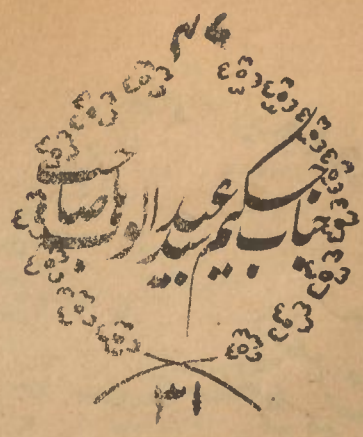 جناب حکیم سید عبدالوہاب صاحب
۳۱